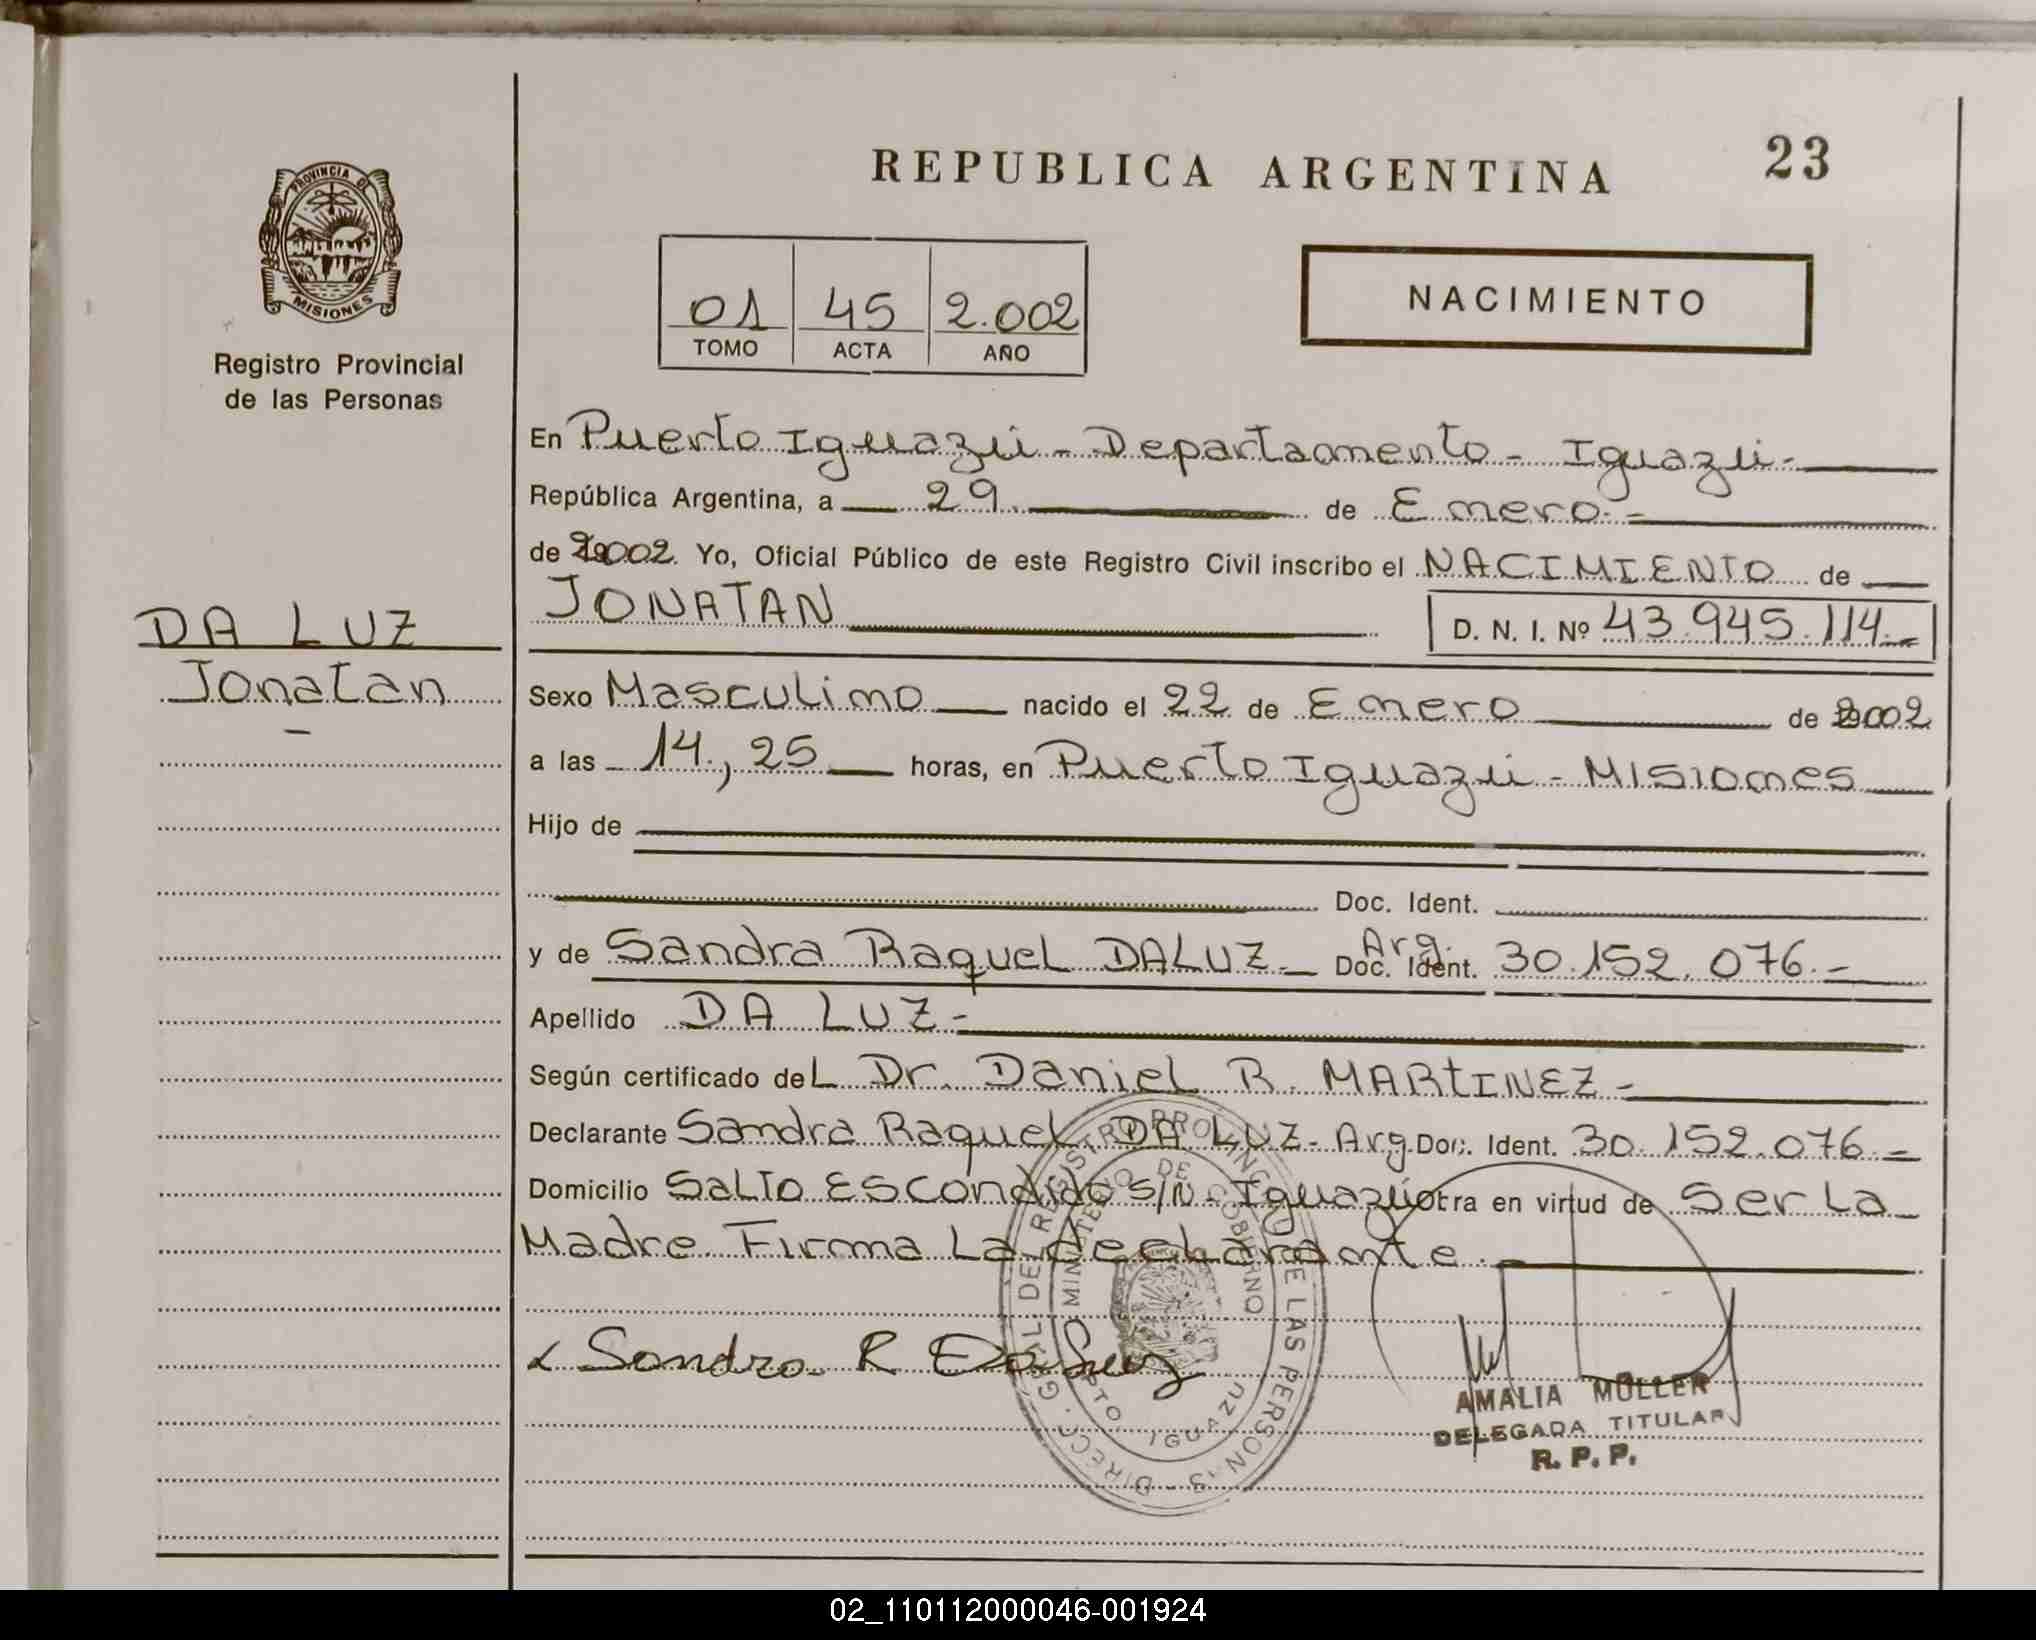 REPUBLICA ARGENTINA
23
PROVINCIA DE
MISIONES
Registro Provincial
de las Personas
01 45 2.002
TOMO ACTA AÑO
NACIMIENTO
En Puerto Iguazú - Departamento - Iguazú -
República Argentina, a 29 de Enero -
de 2002 Yo, Oficial Público de este Registro Civil inscribo el NACIMIENTO de
JONATAN
D. N. I. Nº 43.945.114.-
DA LUZ
Jonatan
-
Sexo Masculino nacido el 22 de Enero de 2002
a las 14,25 horas, en Puerto Iguazú - Misiones
Hijo de
Doc. Ident.
y de Sandra Raquel DALUZ - Arg. Doc. Ident. 30.152.076.-
Apellido DA LUZ -
Según certificado del Dr. Daniel R. MARtINEZ -
Declarante Sandra Raquel DA LUZ - Arg. Doc. Ident. 30.152.076 -
Domicilio Salto Escondido S/N - Iguazú otra en virtud de Ser La
Madre. Firma La declarante.
Sandra R Da Luz
DIRECC. GRAL DEL REGISTRO PROVINCIAL DE LAS PERSONAS
MINISTERIO DE GOBIERNO
DPTO. IGUAZU
AMALIA MULLER
DELEGADA TITULAR
R. P. P.
02_110112000046-001924